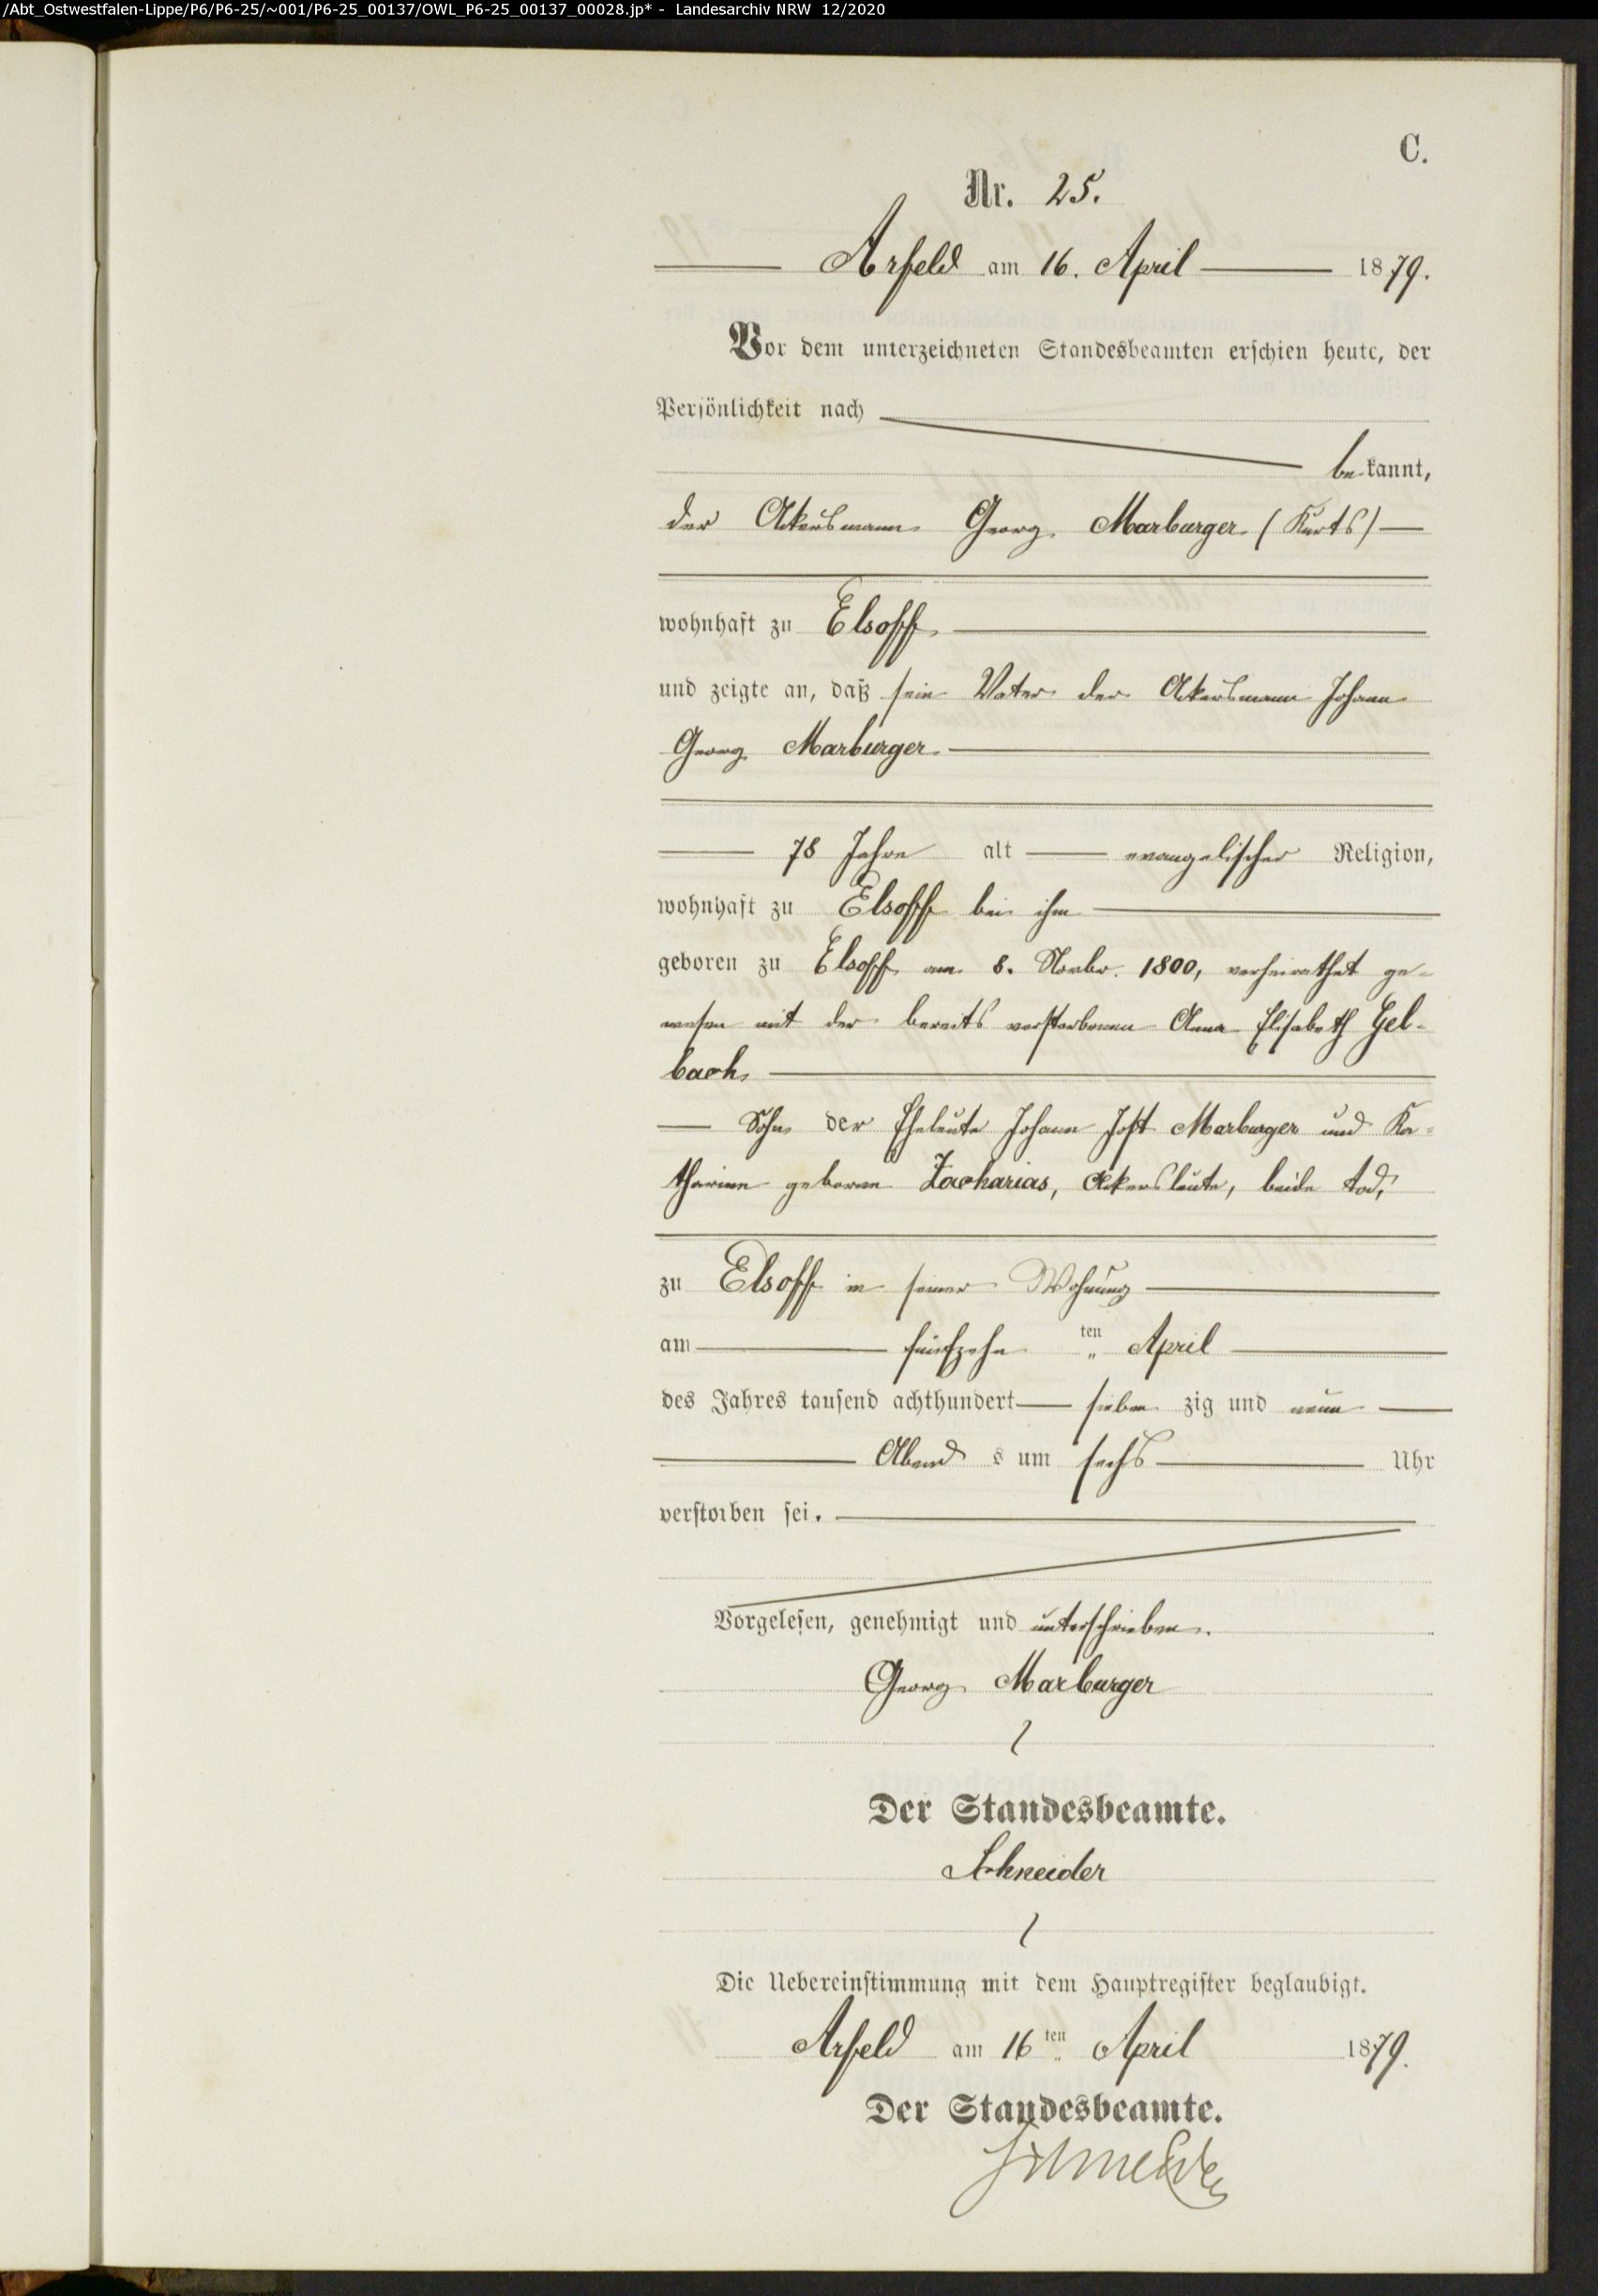 /Abt_Ostwestfalen-Lippe/P6/P6-25/~001/P6-25_00137/OWL_P6-25_00137_00028.jp* - Landesarchiv NRW 12/2020
C.
Nr. 25.
Arfeld am 16. April 1879.
Vor dem unterzeichneten Standesbeamten erschien heute, der
Persönlichkeit nach
bekannt,
der Ackersmann Georg Marburger (Kurts)
wohnhaft zu Elsoff
und zeigte an, daß sein Vater der Ackersmann Johann
Georg Marburger
78 Jahre alt evangelischer Religion,
wohnhaft zu Elsoff bei ihm
geboren zu Elsoff am 8. Novbr. 1800, verheirathet ge-
wesen mit der bereits verstorbenen Anna Elisabeth Gel-
bach
Sohn der Eheleute Johann Jost Marburger und Ka-
tharine geborne Zacharias, Ackersleute, beide tod,
zu Elsoff in seiner Wohnung
am fünfzehn ten April
des Jahres tausend achthundert sieben zig und neun
Abend s um sechs Uhr
verstorben sei.
Vorgelesen, genehmigt und unterschrieben.
Georg Marburger
Der Standesbeamte.
Schneider
Die Uebereinstimmung mit dem Hauptregister beglaubigt.
Arfeld am 16ten April 1879.
Der Standesbeamte.
Schneider